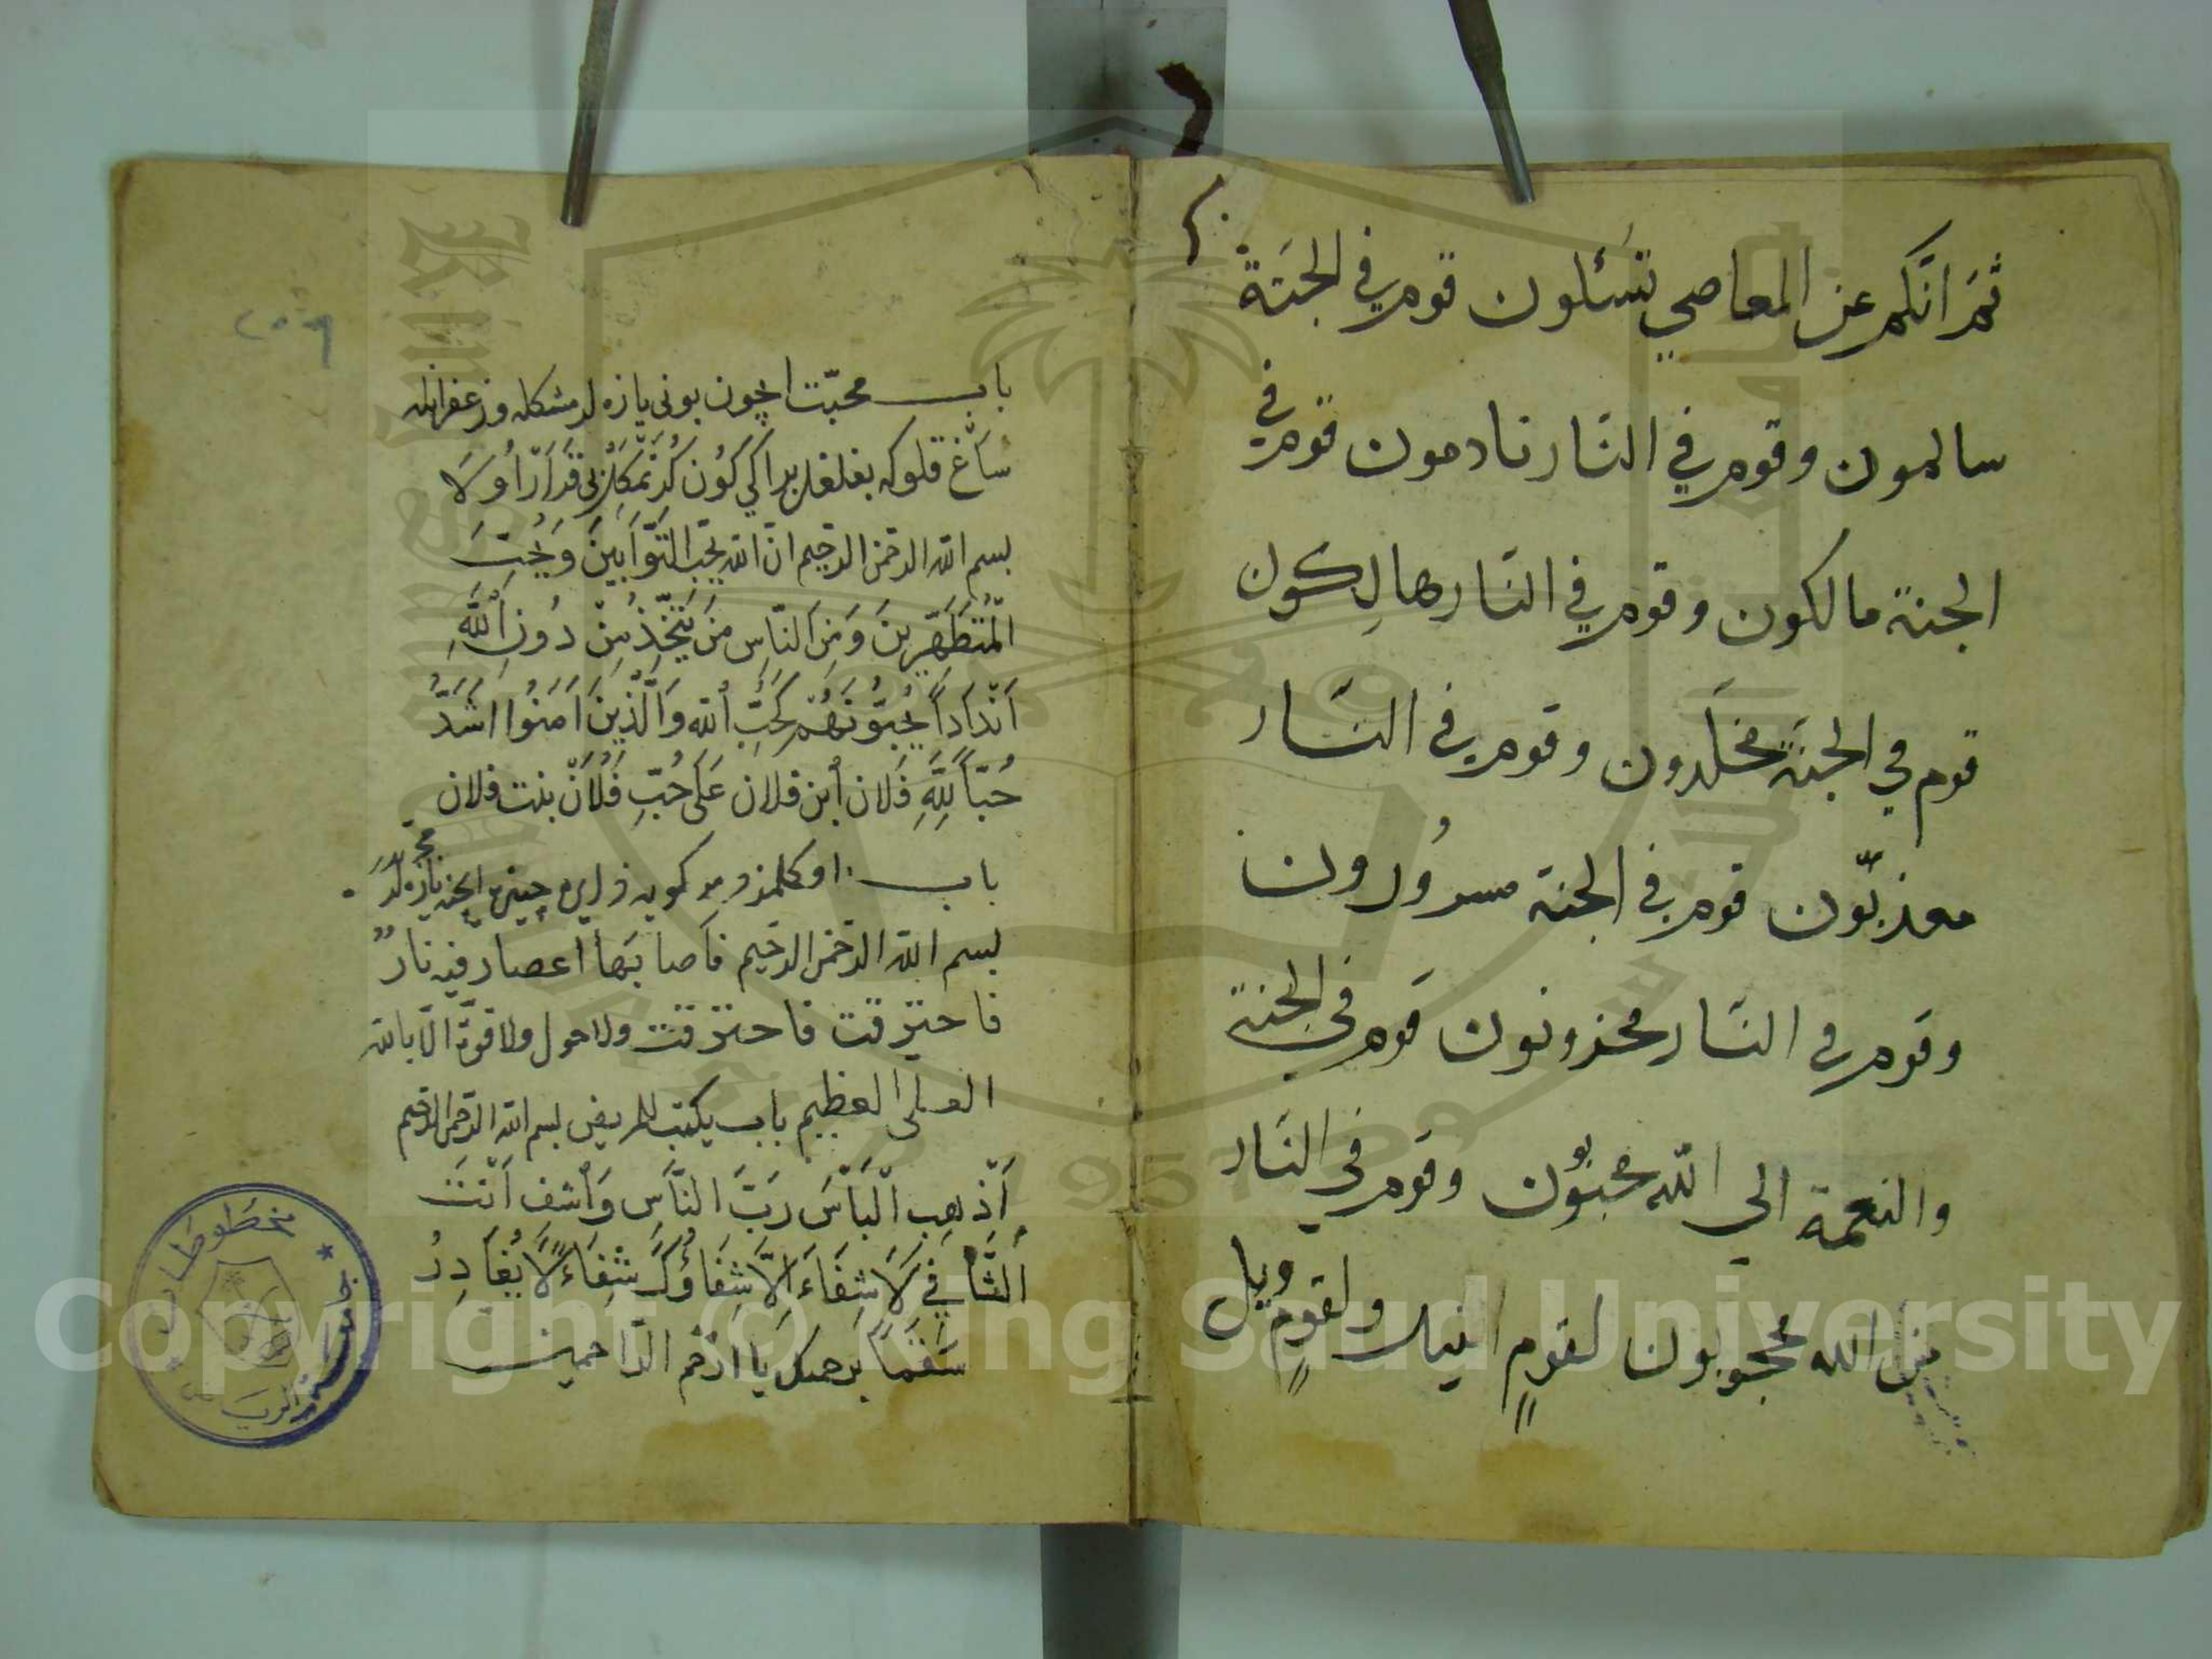 ثمّ انّكم عن المعاصي تسئلون قوم في الجنة
سالمون وقوم في النّار نادمون قوم في
الجنة مالكون وقوم في النّار هالِكون
قوم في الجنة مخلّدون وقوم في النّار
معذبّون قوم في الجنة مسرُورون
وقوم في النّار محزونون قوم في الجنة
والنعمة الي الله محبّون وقوم في النّار
من الله محجوبون لقومٍ ولقومٍ ويل
٢٥٠٩
باب محبّت ايچون بونى يازه لر مشكله وزعفرانله
بسم الله الرحمن الرحيم انّ الله يحبّ التّوّابين وَيُحِبّ
الْمُتَطَهِّرِينَ وَمِنَ النّاسِ مَنْ يَتّخِذُ مِنْ دُونِ اللّهِ
اَنْدَاداً يُحِبُّونَهُمْ كَحُبِّ اللّه وَالَّذِينَ اَمَنُوا اَشَدُّ
حُبّاً لِلّهِ فَلان اُبن فلان عَلَى حُبِّ فَلَانْ بنت فلان
باب
بسم الله الرحمن الرحيم فاصابَها اعصار فيه نارٌ
فاحترقت فاحترقت ولا حول ولا قوّة الّا بالله
العلى العظيم باب يكتب للمريض بسم الله الرحمن الرحيم
اَذْهِبِ الْبَأْسَ رَبَّ النَّاس وَاُشف اَنْتَ
الشَّافِي لَا شِفَاءَ اِلَّا شِفَاؤُكَ شِفَاءً لَا يُغَادِرُ
سَقَمَاً برحمتك يَا اَرْحَم الرّاحمين
جامعة الرياض
مخطوطات
Copyright © King Saud University
1957